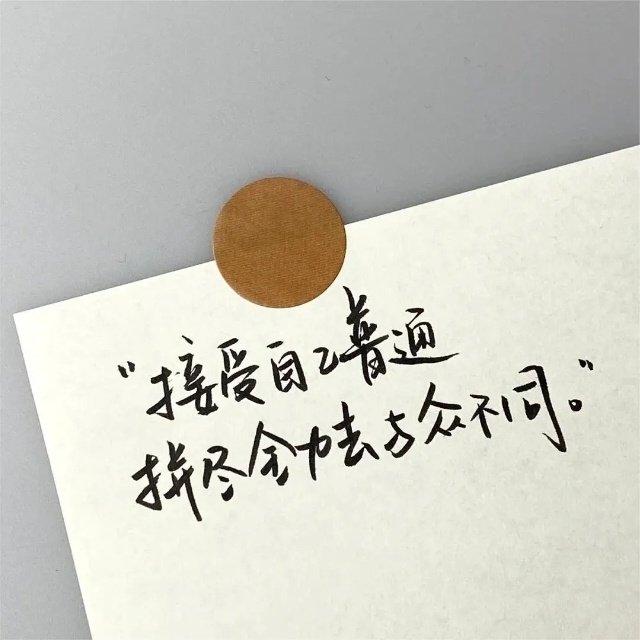 “接受自己普通
拼尽全力去与众不同。”